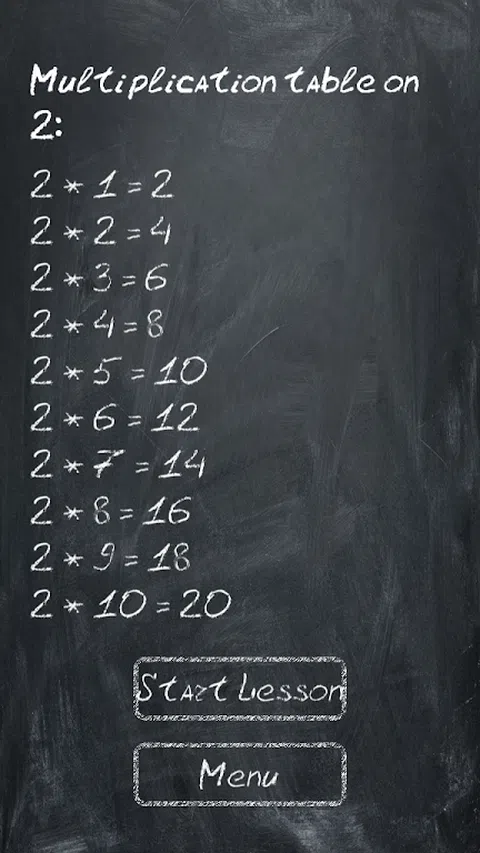 Multiplication table on
2:
2 * 1 = 2
2 * 2 = 4
2 * 3 = 6
2 * 4 = 8
2 * 5 = 10
2 * 6 = 12
2 * 7 = 14
2 * 8 = 16
2 * 9 = 18
2 * 10 = 20
Start Lesson
Menu